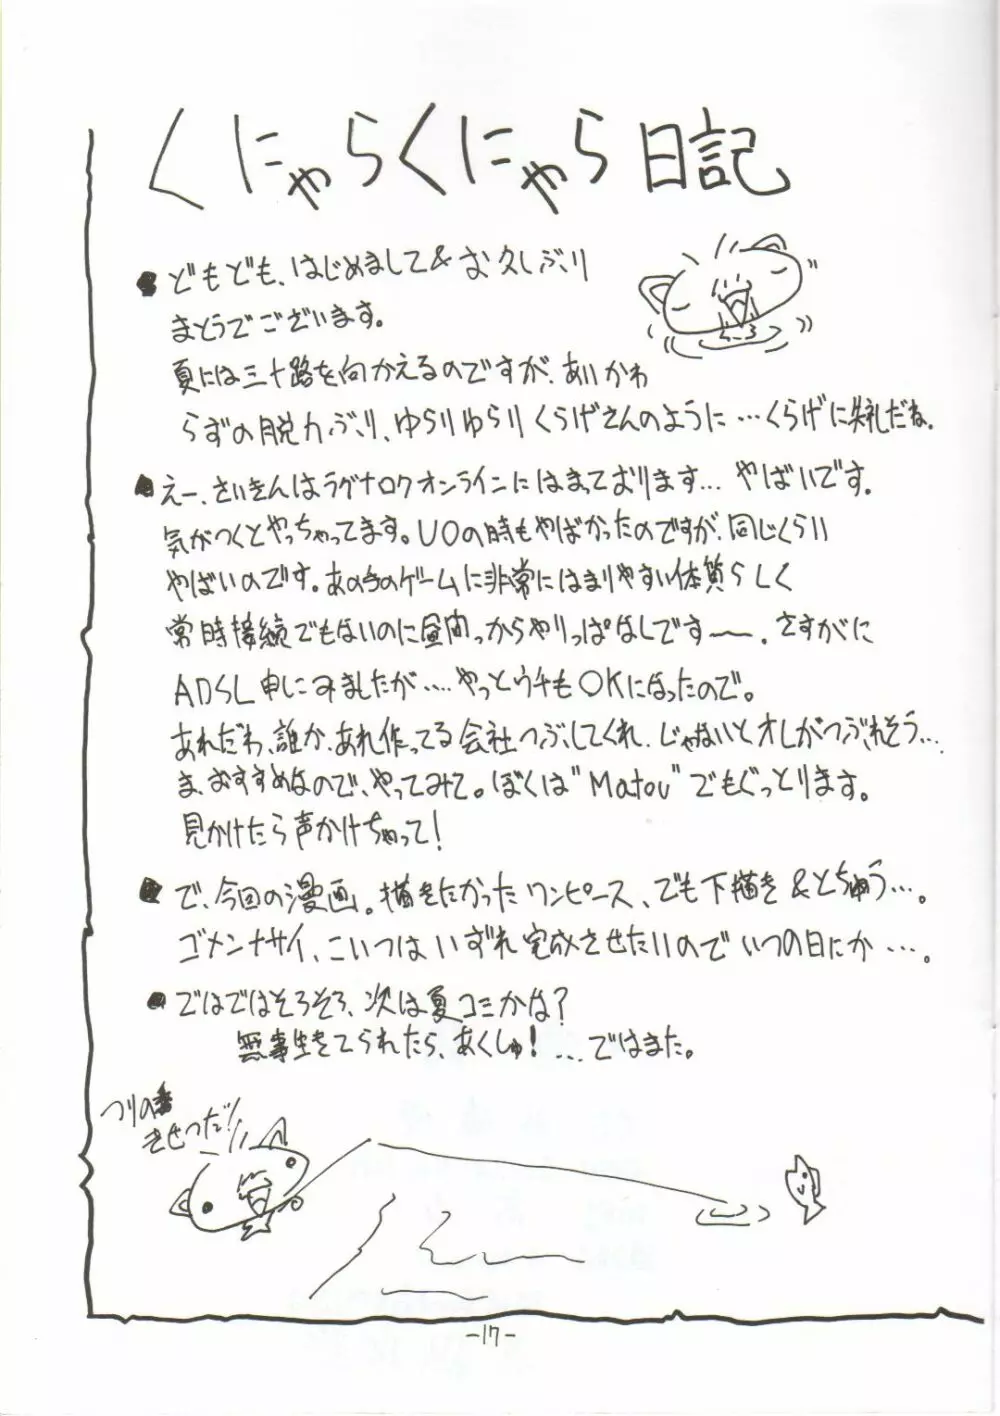 くにゃらくにゃら日記
どもども、はじめまして&お久しぶり
まとうでございます。
夏には三十路を向かえるのですが、あいかわ
らずの脱力ぶり、ゆらりゆらりくらげさんのように…くらげに失礼だね。
えー、さいきんはラグナロクオンラインにはまっております… やばいです。
気がつくとやっちゃってます。UOの時もやばかったのですが、同じくらい
やばいのです。あの手のゲームに非常にはまりやすい体質らしく
常時接続でもないのに昼間っからやりっぱなしです〜。さすがに
ADSL申しこみましたが‥‥やっとウチもOKになったので。
あれだわ、誰か、あれ作ってる会社つぶしてくれ、じゃないとオレがつぶれそう…
ま、おすすめなので、やってみて。ぼくは"Matou"でもぐっとります。
見かけたら声かけちゃって!
で、今回の漫画。描きたかったワンピース、でも下描き&とちゅう…。
ゴメンナサイ、こいつはいずれ完成させたいのでいつの日にか…。
ではではそろそろ、次は夏コミかな?
無事生きてられたら、あくしゅ! …ではまた。
つりの
きせつだ!!
-17-